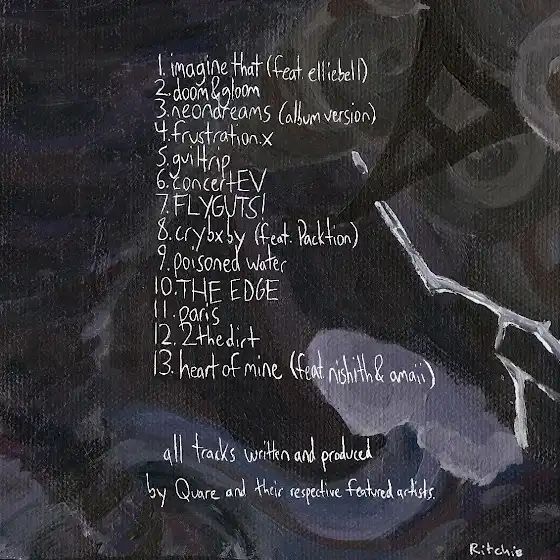 1. imagine that (feat. elliebell)
2. doom&gloom
3. neondreams (album version)
4. frustration.x
5. guiltrip
6. concertEV
7. FLYGUTS!
8. crybxby (feat. Packtion)
9. poisoned water
10. THE EDGE
11. paris
12. 2thedirt
13. heart of mine (feat nishith & amaii)
all tracks written and produced
by Quare and their respective featured artists.
Ritchie